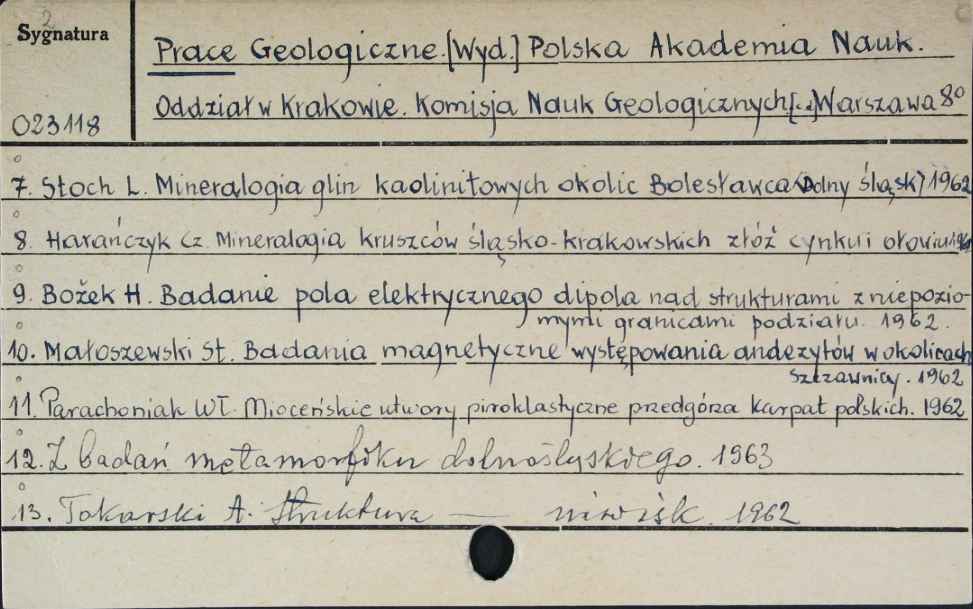 2
Sygnatura
Prace Geologiczne.[Wyd.] Polska Akademia Nauk.
Oddział w Krakowie. Komisja Nauk Geologicznych[..]Warszawa 8°
023118
7. Stoch L. Mineralogia glin kaolinitowych okolic Bolesławca (Dolny śląsk) 1962
8. Harańczyk Cz. Mineralogia kruszców śląsko-krakowskich złóż cynku i ołowiu
9. Božek H. Badanie pola elektrycznego dipola nad strukturami z niepozio-
mymi granicami podziału. 1962.
10. Małoszewski St. Badania magnetyczne występowania andezytów w okolicach
Szczawnicy. 1962
11. Parachoniak Wł. Mioceńskie utwory piroklastyczne przedgórza Karpat polskich. 1962
12. Z badań metamorfiku dolnośląskiego. 1963
13. Tokarski A. Struktura — niwisk. 1962